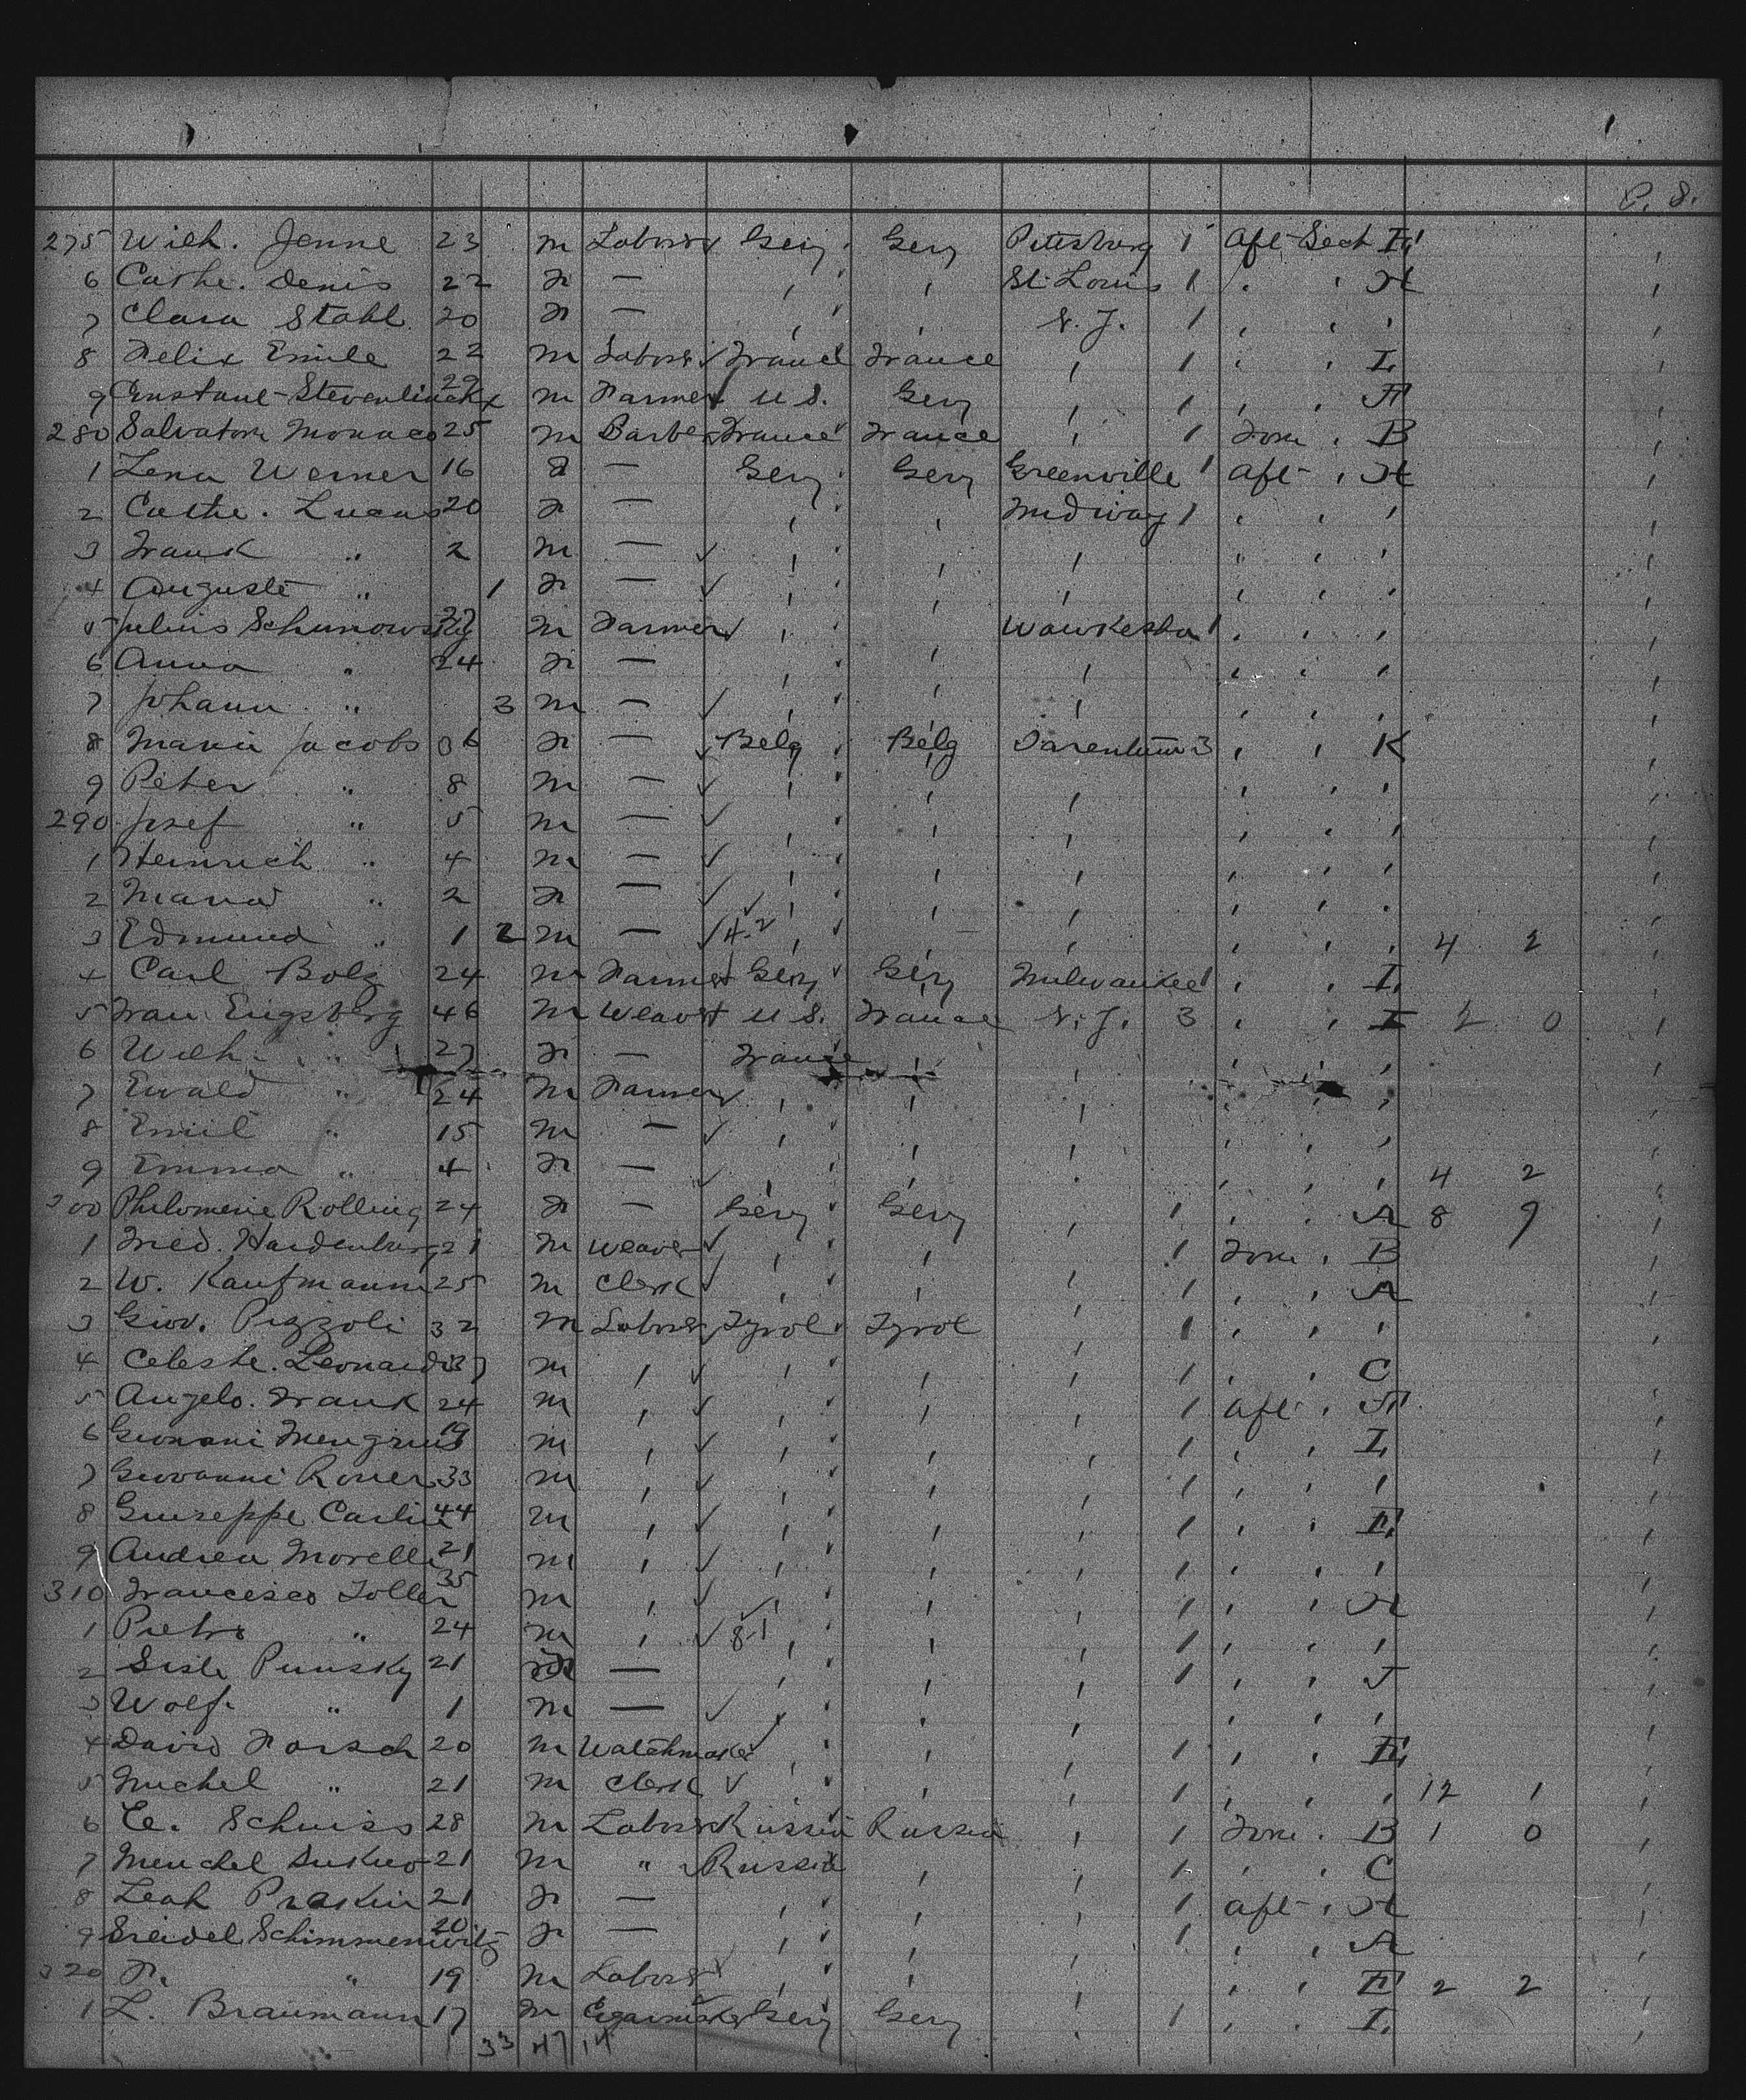 P. S.
275 Wilh. Jenne 23 m Laborer Gery Gery Pittsburg 1 Aft Sect
6 Cathe. Denis 22 F — , , St. Louis 1 , , H
7 Clara Stahl 20 F — , , N. J. 1 , , ,
8 Felix Emile 22 m Laborer France France , 1 , , I
9 29 m Farmer U S. Gery , 1 , ,
280 Salvatore Monaco 25 m Barber France France , 1 Fore , B
1 Lena Werner 16 F — Gery Gery Greenville 1 Aft , H
2 Cathe. Lucas 20 F — , , Midway 1 , , ,
3 Frank " 2 m — , , , , , ,
4 Auguste " 1 F — , , , , , ,
5 Julius Schunowsky m Farmer , , Waukesha 1 , , ,
6 Anna " 24 F — , , , , , ,
7 Johann " 3 m — , , , , , ,
8 Maria Jacobs 36 F — Belg Belg Tarentum 3 , , K
9 Peter " 8 m — , , , , , ,
290 Josef " 5 m — , , , , , ,
1 Heinrich " 4 m — , , , , , ,
2 Maria " 2 F — , , , , , ,
3 Edmund " 1 2 m — 4-2 , , , , , , 4 2
4 Carl Bolz 24 m Farmer Gery Gery Milwaukee 1 , , I
5 Engsberg 46 m Weaver U S. France N. J. 3 , , I 2 0
6 Wilh. " 27 F — France , , , , ,
7 Ewald " 24 m Farmer , , , , , ,
8 Emil " 15 m — , , , , , ,
9 Emma " 4 F — , , , , , , 4 2
300 Philomene Rolling 24 F — Gery Gery , 1 , , A 8 9
1 Fried. Hardenburg 21 m Weaver , , , 1 Fore , B
2 W. Kaufmann 25 m Clerk , , , 1 , , A
3 Giov. Pizzoli 32 m Laborer Tyrol Tyrol , 1 , , ,
4 Celeste. Leonardi 37 m , , , , 1 , , C
5 Angelo. Frank 24 m , , , , 1 Aft ,
6 19 m , , , , 1 , , I
7 Giovanni Roner 33 m , , , , 1 , , ,
8 Giuseppe Carlin 44 m , , , , 1 , ,
9 Andrea Morelli 21 m , , , , 1 , , ,
310 Francesco Toller 35 m , , , , 1 , , H
1 Pietro " 24 m , 8-1 , , , 1 , , ,
2 Punsky 21 F — , , , 1 , , J
3 Wolf. " 1 m — , , , , , ,
4 David Forsch 20 m Watchmaker , , , 1 , ,
5 Michel " 21 m Clerk , , , 1 , , , 12 1
6 Schuiss 28 m Laborer Russia Russia , 1 Fore . B 1 0
7 Mendel 21 m " Russia , , 1 , , C
8 Leah Praskin 21 F — , , , 1 Aft , H
9 20 F — , , , 1 , , A
320 F. " 19 m Laborer , , , , , 2 2
1 L. Braumann 17 m Cigarmaker Gery Gery , 1 , , I
33 47 14